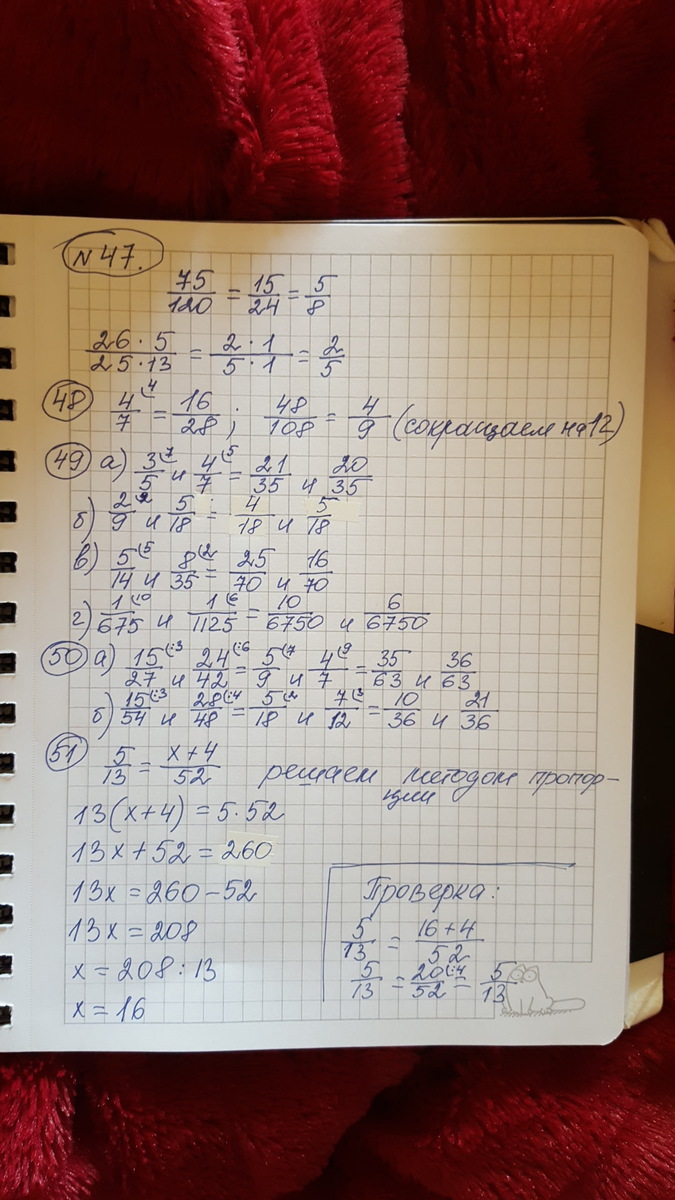 №47.
75/120 = 15/24 = 5/8
26·5/25·13 = 2·1/5·1 = 2/5
48 4/7 (4 = 16/28; 48/108 = 4/9 (сокращаем на 12)
49 а) 3/5 (7 и 4/7 (5 = 21/35 и 20/35
б) 2/9 (2 и 5/18 = 4/18 и 5/18
в) 5/14 (5 и 8/35 (2 = 25/70 и 16/70
г) 1/675 (10 и 1/1125 (6 = 10/6750 и 6/6750
50 а) 15/27 (:3 и 24/42 (:6 = 5/9 (7 и 4/7 (9 = 35/63 и 36/63
б) 15/54 (:3 и 28/48 (:4 = 5/18 (2 и 7/12 (3 = 10/36 и 21/36
51 5/13 = x+4/52 решаем методом пропор-
ции
13(x+4) = 5·52
13x+52 = 260
13x = 260-52
13x = 208
x = 208:13
x = 16
Проверка:
5/13 = 16+4/52
5/13 = 20/52 (:4 = 5/13